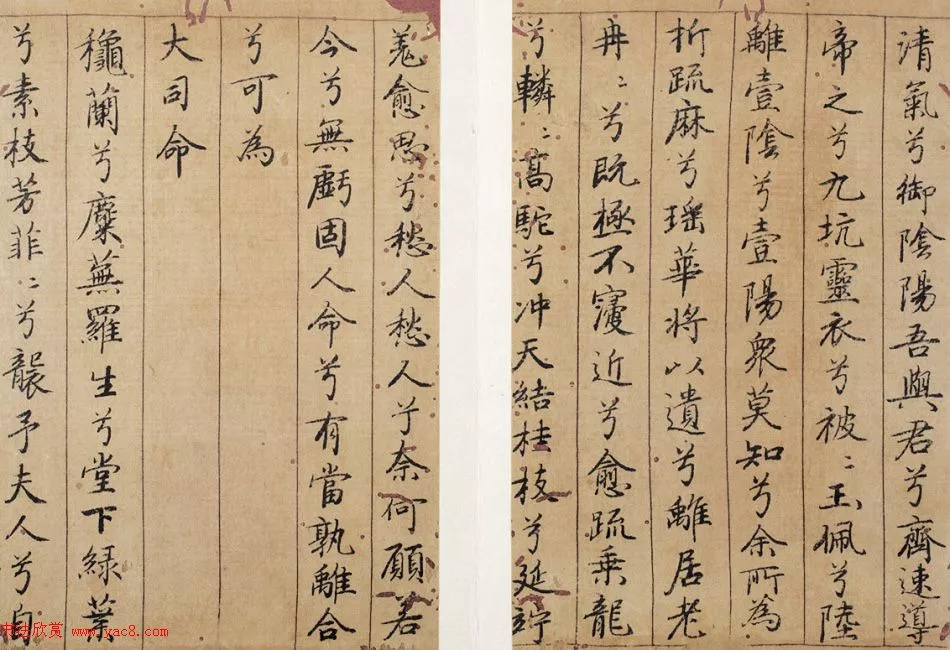 清氣兮御陰陽吾與君兮齊速導
帝之兮九坑靈衣兮被〻玉佩兮陸
離壹陰兮壹陽衆莫知兮余所為
折疏麻兮瑶華將以遺兮離居老
冉〻兮既極不寖近兮愈疏乘龍
兮轔〻高駝兮冲天結桂枝兮延竚
羗愈思兮愁人愁人兮奈何願若
今兮無虧固人命兮有當孰離合
兮可為
大司命
龝蘭兮麋蕪羅生兮堂下緑葉
兮素枝芳菲〻兮襲予夫人兮自
书法欣赏 www.yac8.com